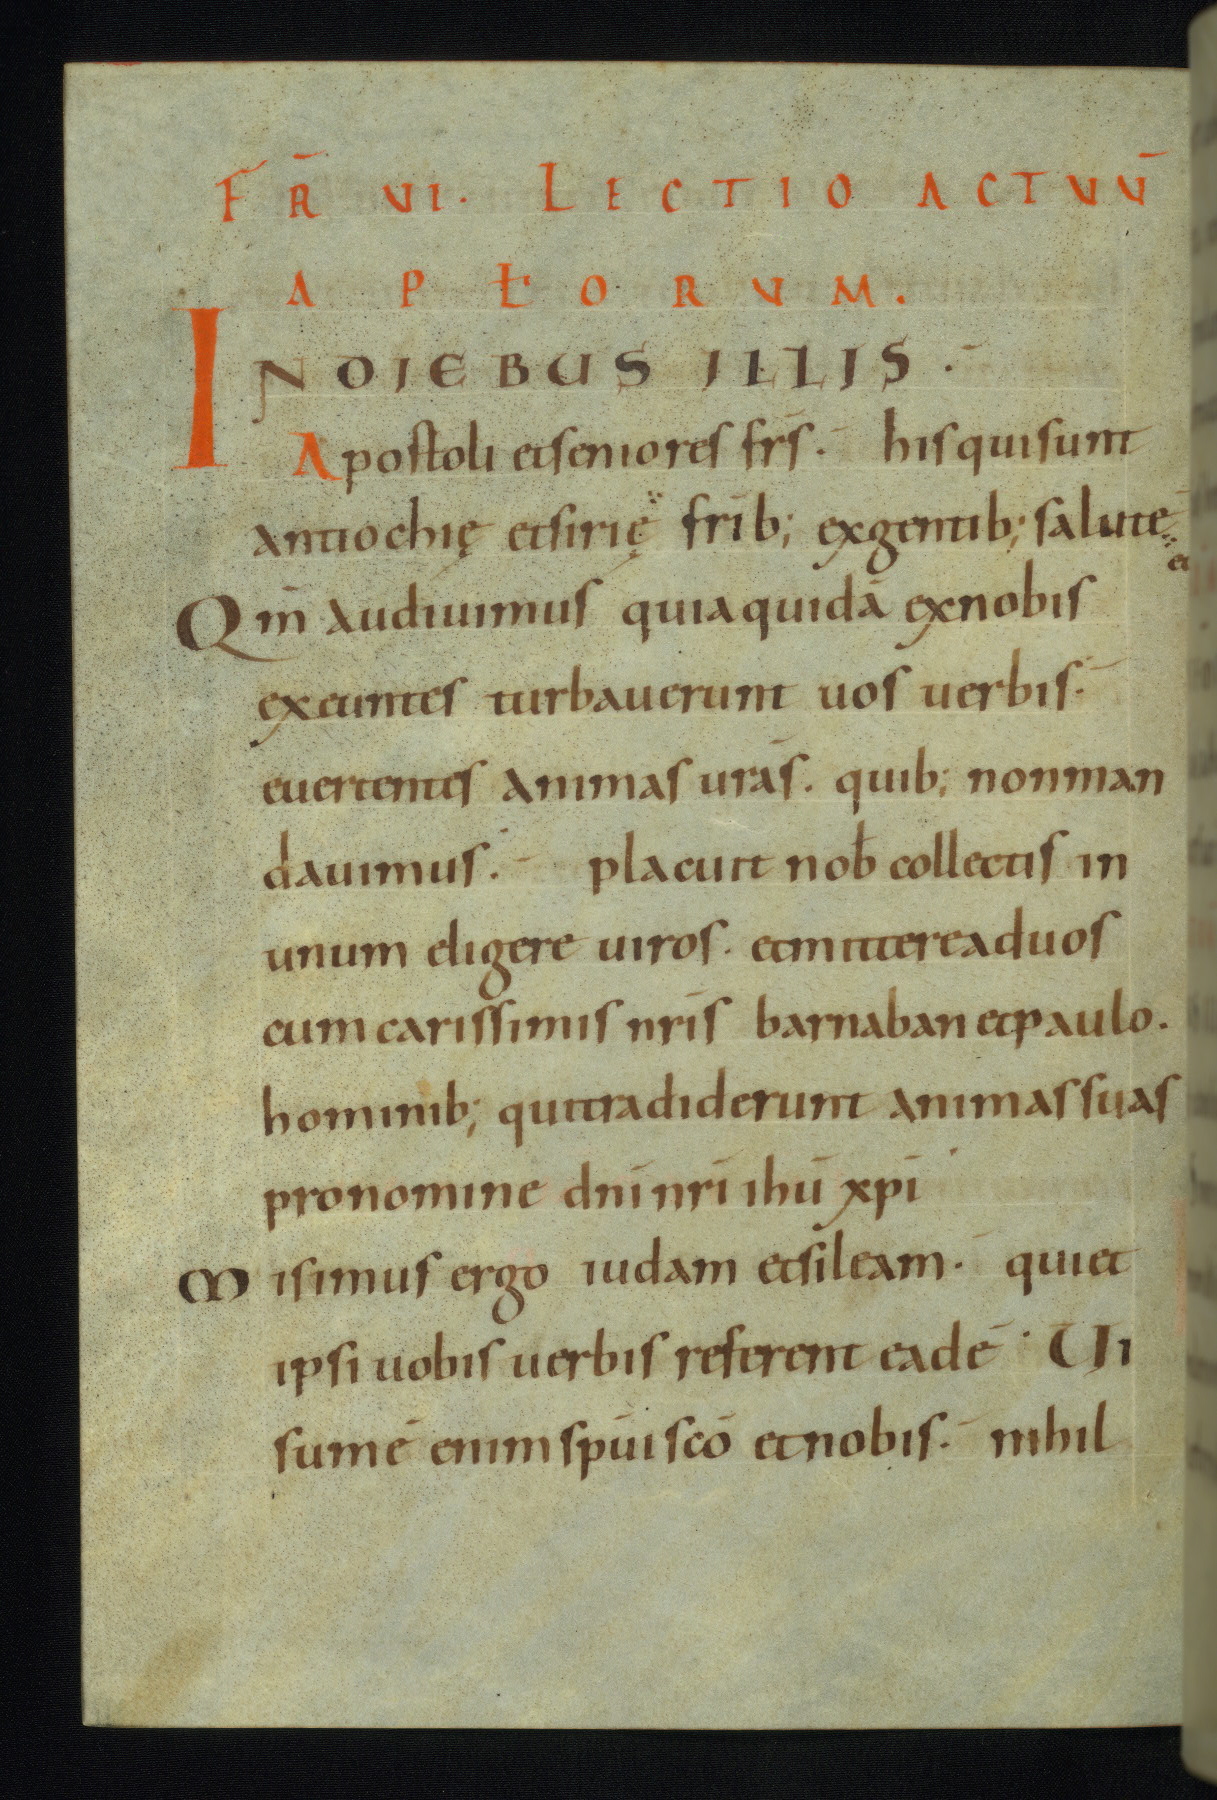 FR̄ VI. LECTIO ACTVV̄
APŁORVM.
IN DIEBUS ILLIS.
Apostoli et seniores fr̄s. his qui sunt
antiochię et sirię frīb; ex gentib; salutē
et
Qm̄ audiuimus quia quidā ex nobis
exeuntes turbauerunt uos uerbis.
euertentes animas urās. quib; non man
dauimus. placuit nob̄ collectis in
unum eligere uiros. et mittere ad uos
cum carissimis nrīs barnaban et paulo.
hominib; qui tradiderunt animas suas
pro nomine dnī nrī ihū xpī
Misimus ergo iudam et sileam. qui et
ipsi uobis uerbis referent eadē. Ui
sum ē enim spūi scō et nobis. nihil